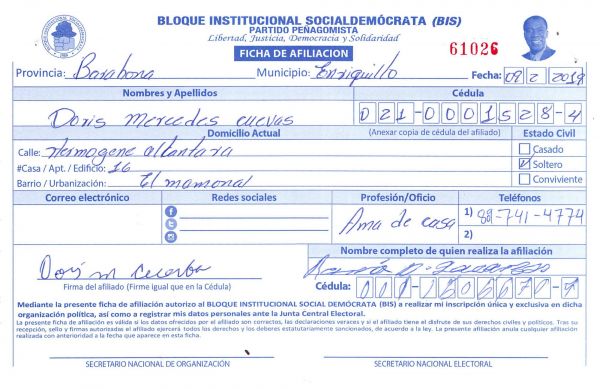 BLOQUE INSTITUCIONAL SOCIALDEMÓCRATA (BIS)
PARTIDO PEÑAGOMISTA
Libertad, Justicia, Democracia y Solidaridad
FICHA DE AFILIACION
61026
Provincia: Barahona Municipio: Enriquillo Fecha: 09 2 2019
Nombres y Apellidos Cédula
Doris Mercedes Cuevas 021-0001528-4
Domicilio Actual (Anexar copia de cédula del afiliado) Estado Civil
Calle: Hermogene alcantara Casado
#Casa / Apt. / Edificio: 16 Soltero
Barrio / Urbanización: El mamonal Conviviente
Correo electrónico Redes sociales Profesión/Oficio Teléfonos
Ama de casa 1) 82-741-4774
2)
Nombre completo de quien realiza la afiliación
Doris m Cuevas
Firma del afiliado (Firme igual que en la Cédula) Cédula:
Mediante la presente ficha de afiliación autorizo al BLOQUE INSTITUCIONAL SOCIAL DEMÓCRATA (BIS) a realizar mi inscripción única y exclusiva en dicha
organización política, así como a registrar mis datos personales ante la Junta Central Electoral.
La presente ficha de afiliación es válida si los datos ofrecidos por el afiliado son correctos, las declaraciones veraces y si el afiliado tiene el disfrute de sus derechos civiles y políticos. Tras su
recepción, sello y firmas autorizadas el afiliado ejercerá todos los derechos y los deberes estatutariamente sancionados, de acuerdo a la ley. La presente afiliación anula cualquier afiliación
realizada con anterioridad a la fecha que aparece en esta ficha.
SECRETARIO NACIONAL DE ORGANIZACIÓN SECRETARIO NACIONAL ELECTORAL